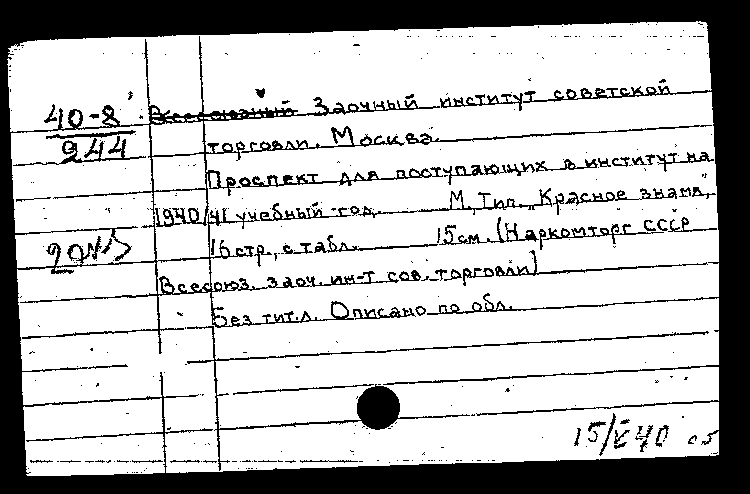 40-8
944
Всесоюзный Заочный институт советской
торговли. Москва.
Проспект для поступающих в институт на
1940/41 учебный год. М, Тип. „Красное знамя",
16 стр., с табл. 15 см. (Наркомторг СССР
Всесоюз. заоч. ин-т сов. торговли)
Без тит.л. Описано по обл.
15/X 40